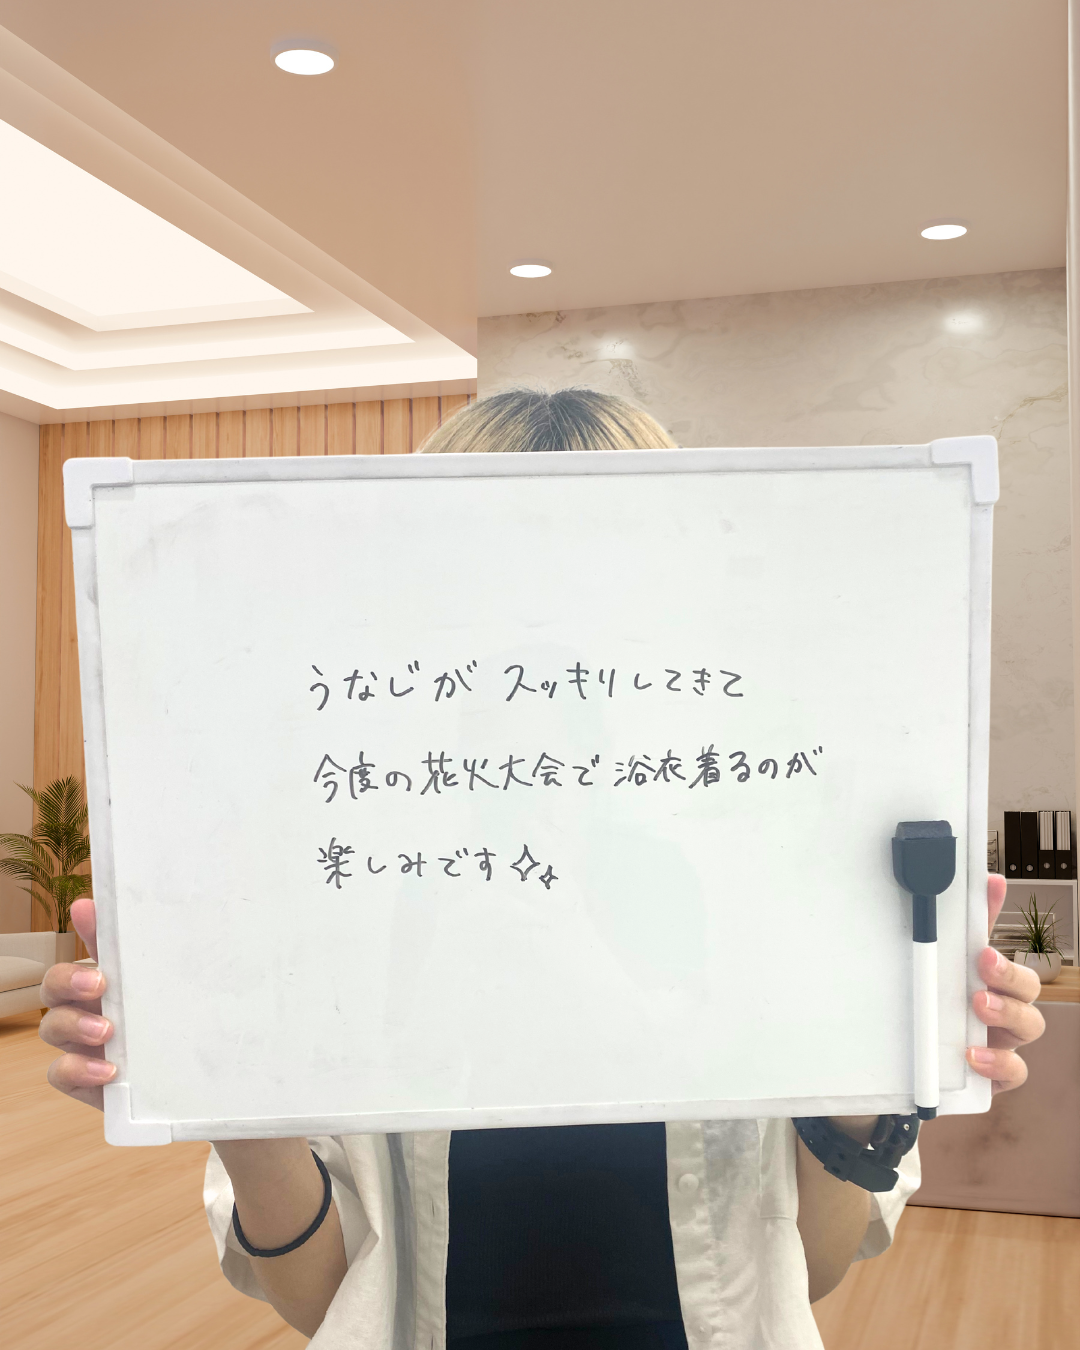 うなじがスッキリしてきて
今度の花火大会で浴衣着るのが
楽しみです✨